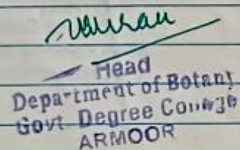 Head
Department of Botany
Govt. Degree College
ARMOOR